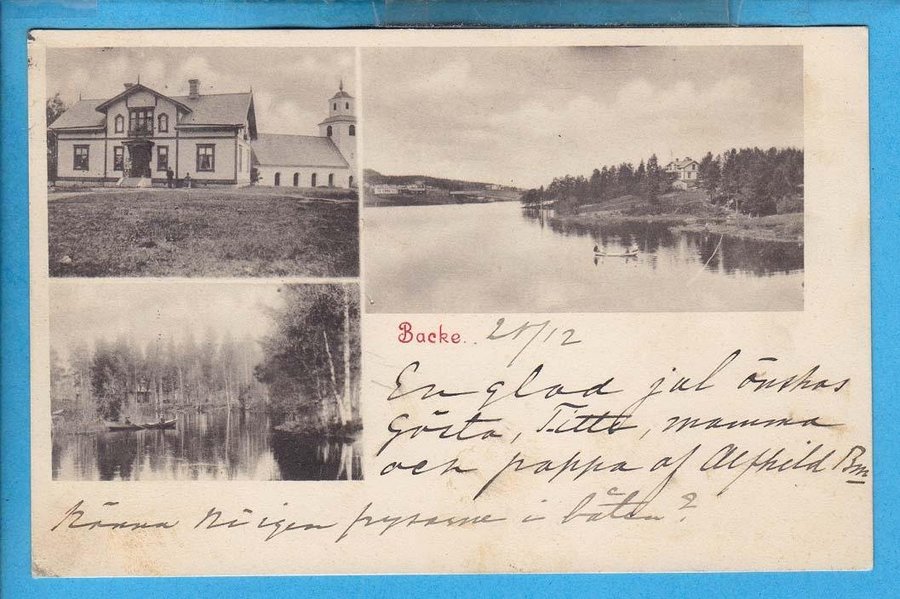 Backe. 20/12
En glad jul önskas
Gösta, Titte, mamma
och pappa af Alfhild Bm
Känna Ni igen personerne i båten?